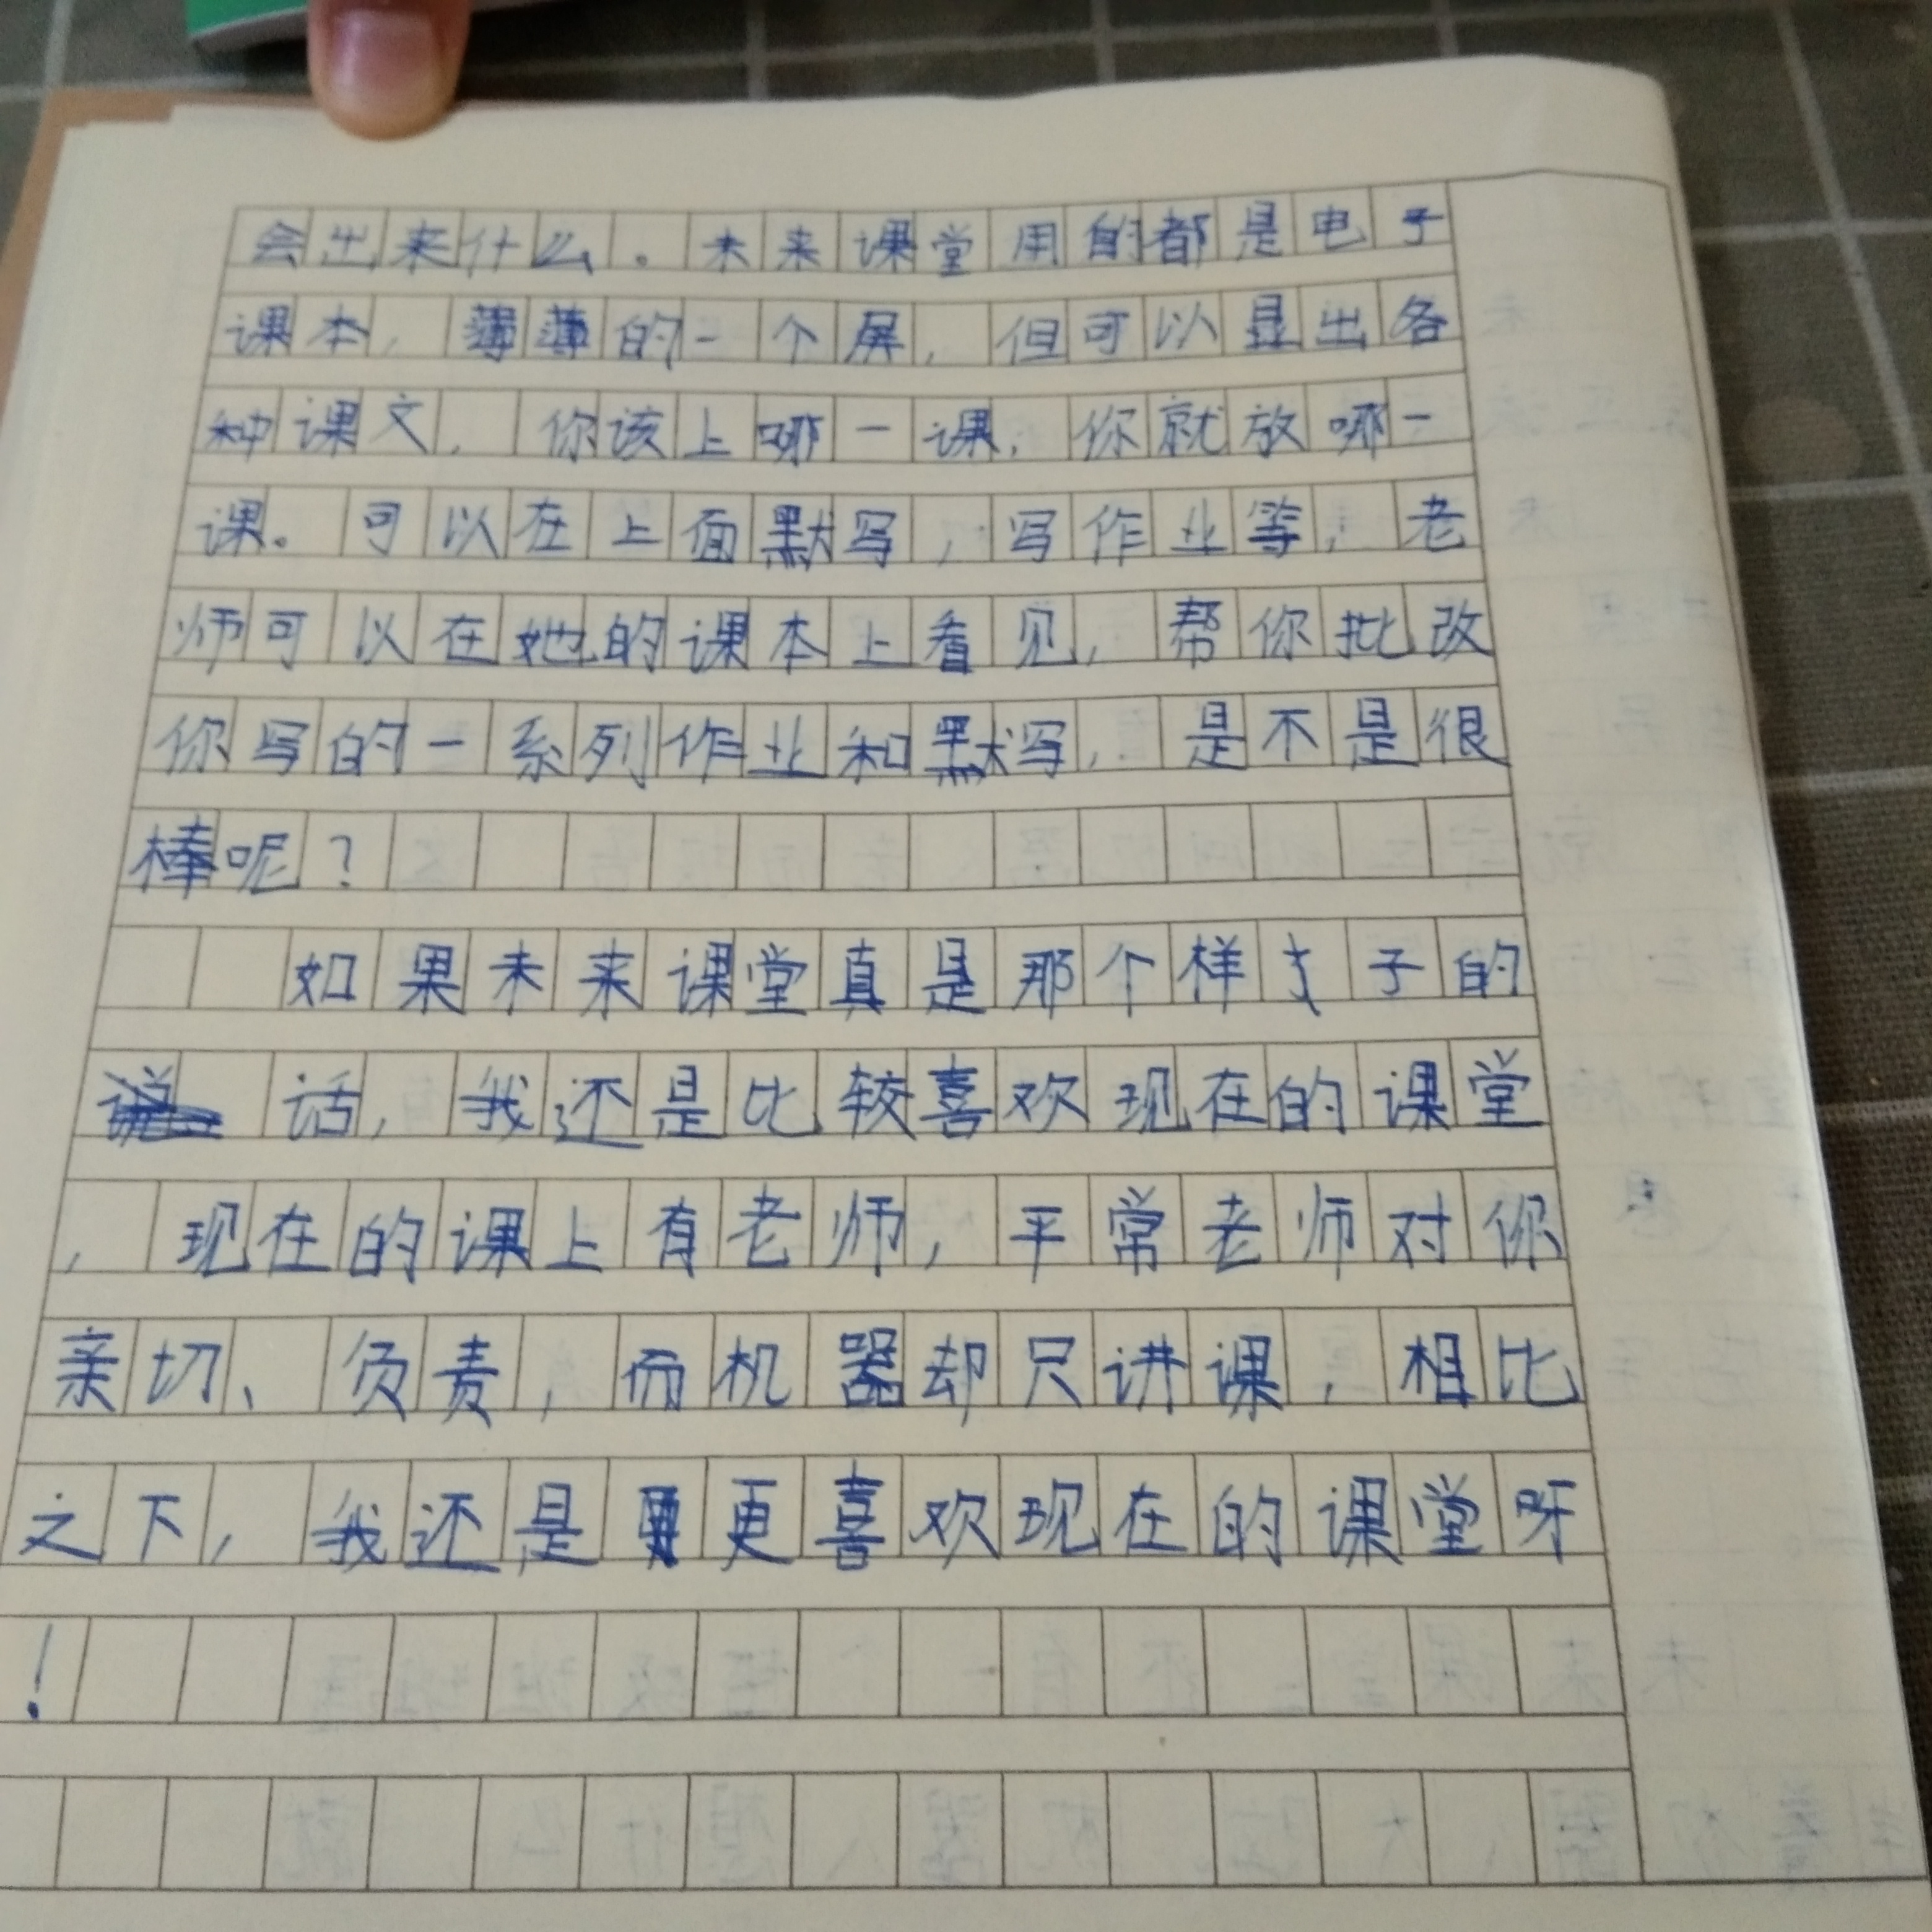 会出来什么。未来课堂用的都是电子
课本，薄薄的一个屏，但可以显出各
种课文，你该上哪一课，你就放哪一
课。可以在上面默写，写作业等，老
师可以在她的课本上看见，帮你批改
你写的一系列作业和默写，是不是很
棒呢？
如果未来课堂真是那个样子的
话，我还是比较喜欢现在的课堂
，现在的课上有老师，平常老师对你
亲切、负责，而机器却只讲课，相比
之下，我还是更喜欢现在的课堂呀
！